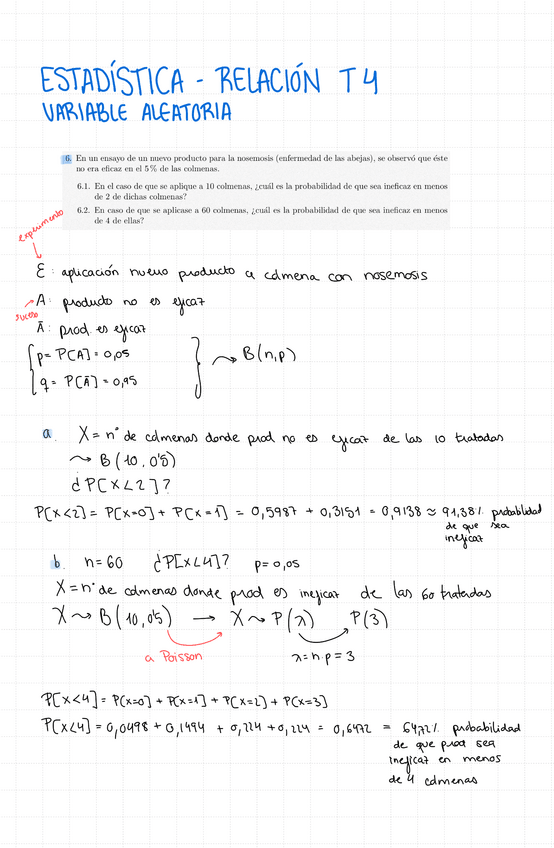 ESTADÍSTICA - RELACIÓN T4
VARIABLE ALEATORIA
6. En un ensayo de un nuevo producto para la nosemosis (enfermedad de las abejas), se observó que éste
no era eficaz en el 5% de las colmenas.
6.1. En el caso de que se aplique a 10 colmenas, ¿cuál es la probabilidad de que sea ineficaz en menos
de 2 de dichas colmenas?
6.2. En caso de que se aplicase a 60 colmenas, ¿cuál es la probabilidad de que sea ineficaz en menos
de 4 de ellas?
experimento
Ɛ: aplicación nuevo producto a colmena con nosemosis
A: producto no es eficaz
suceso
Ā: prod. es eficaz
p = P[A] = 0,05
q = P[Ā] = 0,95
⤳ B(n,p)
a. X = nº de colmenas donde prod no es eficaz de las 10 tratadas
⤳ B(10, 0'5)
¿P[X<2]?
P[X<2] = P[X=0] + P[X=1] = 0,5987 + 0,3151 = 0,9138 ≈ 91,38% probabilidad
de que sea
ineficaz
b. n=60 ¿P[X<4]? p=0,05
X = nº de colmenas donde prod es ineficaz de las 60 tratadas
X ⤳ B(10,0'5) → X ⤳ P(λ) P(3)
a Poisson λ = n·p = 3
P[X<4] = P[X=0] + P[X=1] + P[X=2] + P[X=3]
P[X<4] = 0,0498 + 0,1494 + 0,224 + 0,224 = 0,6472 = 64,72% probabilidad
de que prod sea
ineficaz en menos
de 4 colmenas